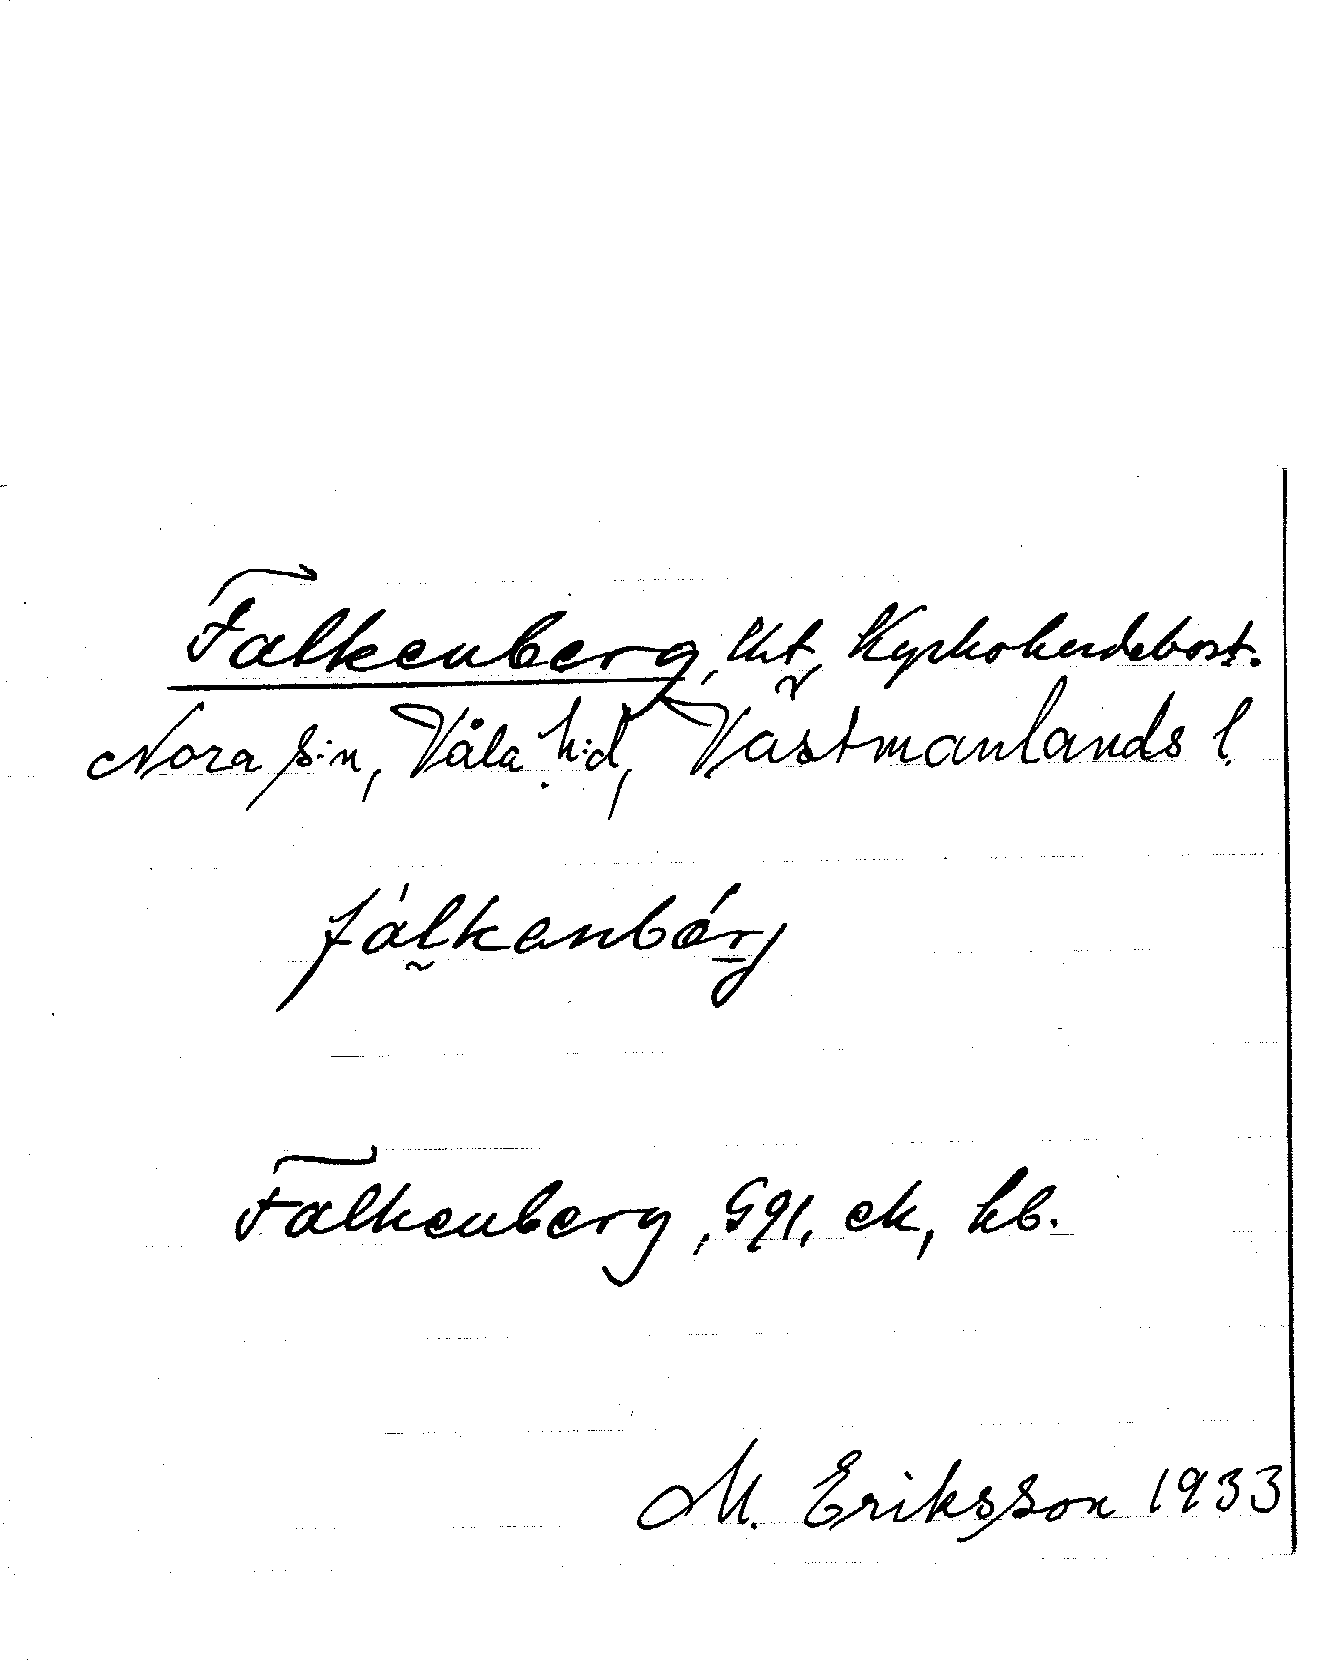 Falkenberg, lht, Kyrkoherdebost.
Nora s:n, Våla h:d, Västmanlands l.
fálkenbárj
Falkenberg, Ggl, ek, kb.
M. Eriksson 1933